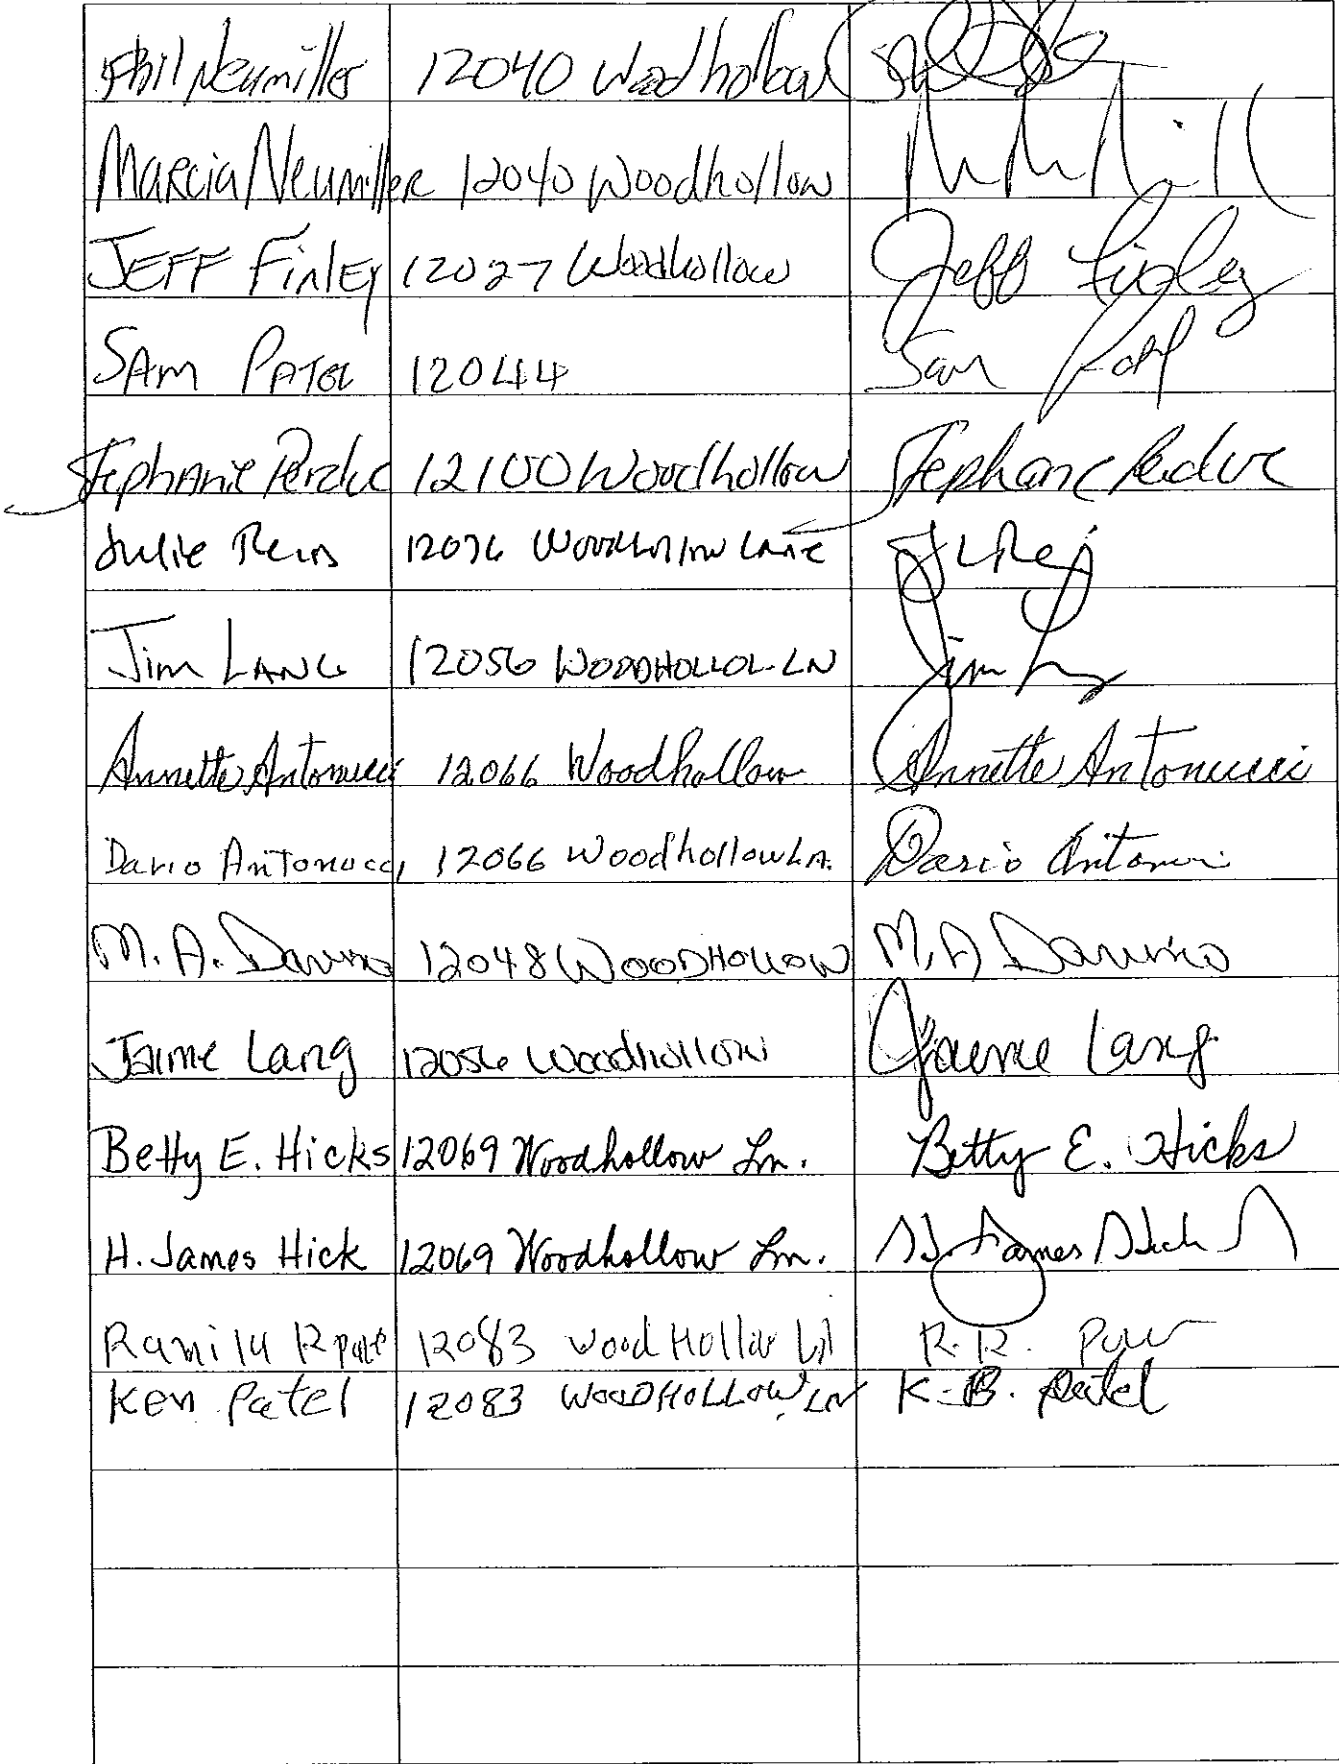 Phil Neumiller 12040 Woodhollow
Marcia Neumiller 12040 Woodhollow
JEFF FinlEy 12027 Woodhollow Jeff Finley
SAm PATEL 12044 Sam Patel
Stephanie Perduc 12100 Woodhollow Stephanie Perduc
Julie 12076 Woodhollow Lane
Jim LANG 12056 WOODHOLLOL LN Jim
Annette Antonucci 12066 Woodhollow Annette Antonucci
Dario Antonucci 12066 Woodhollow Ln. Dario
M. A. 12048 WOODHOLLOW M. A
Jaime Lang 12056 Woodhollow Jaime Lang
Betty E. Hicks 12069 Woodhollow Ln. Betty E. Hicks
H. James Hick 12069 Woodhollow Ln. H. James Hick
Ramila R 12083 Wood Hollow Ln R. R.
Ken Patel 12083 WOODHOLLOW LN K. B. Patel